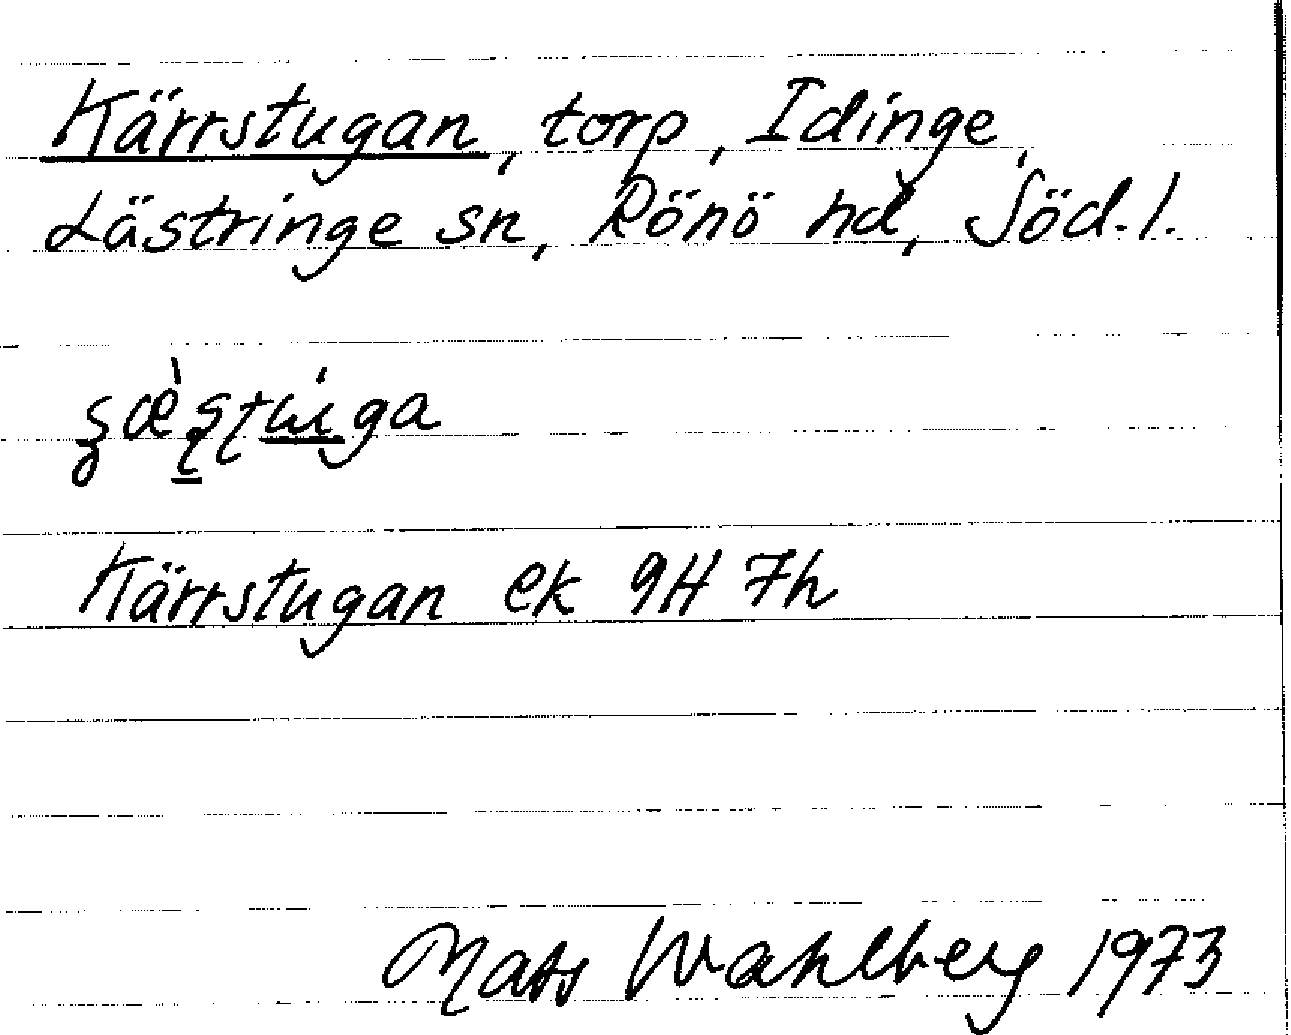 Kärrstugan, torp, Idinge,
Lästringe sn, Rönö hd, Söd. l.
Kärrstugan ek 9H 7h
Mats Wahlberg 1973